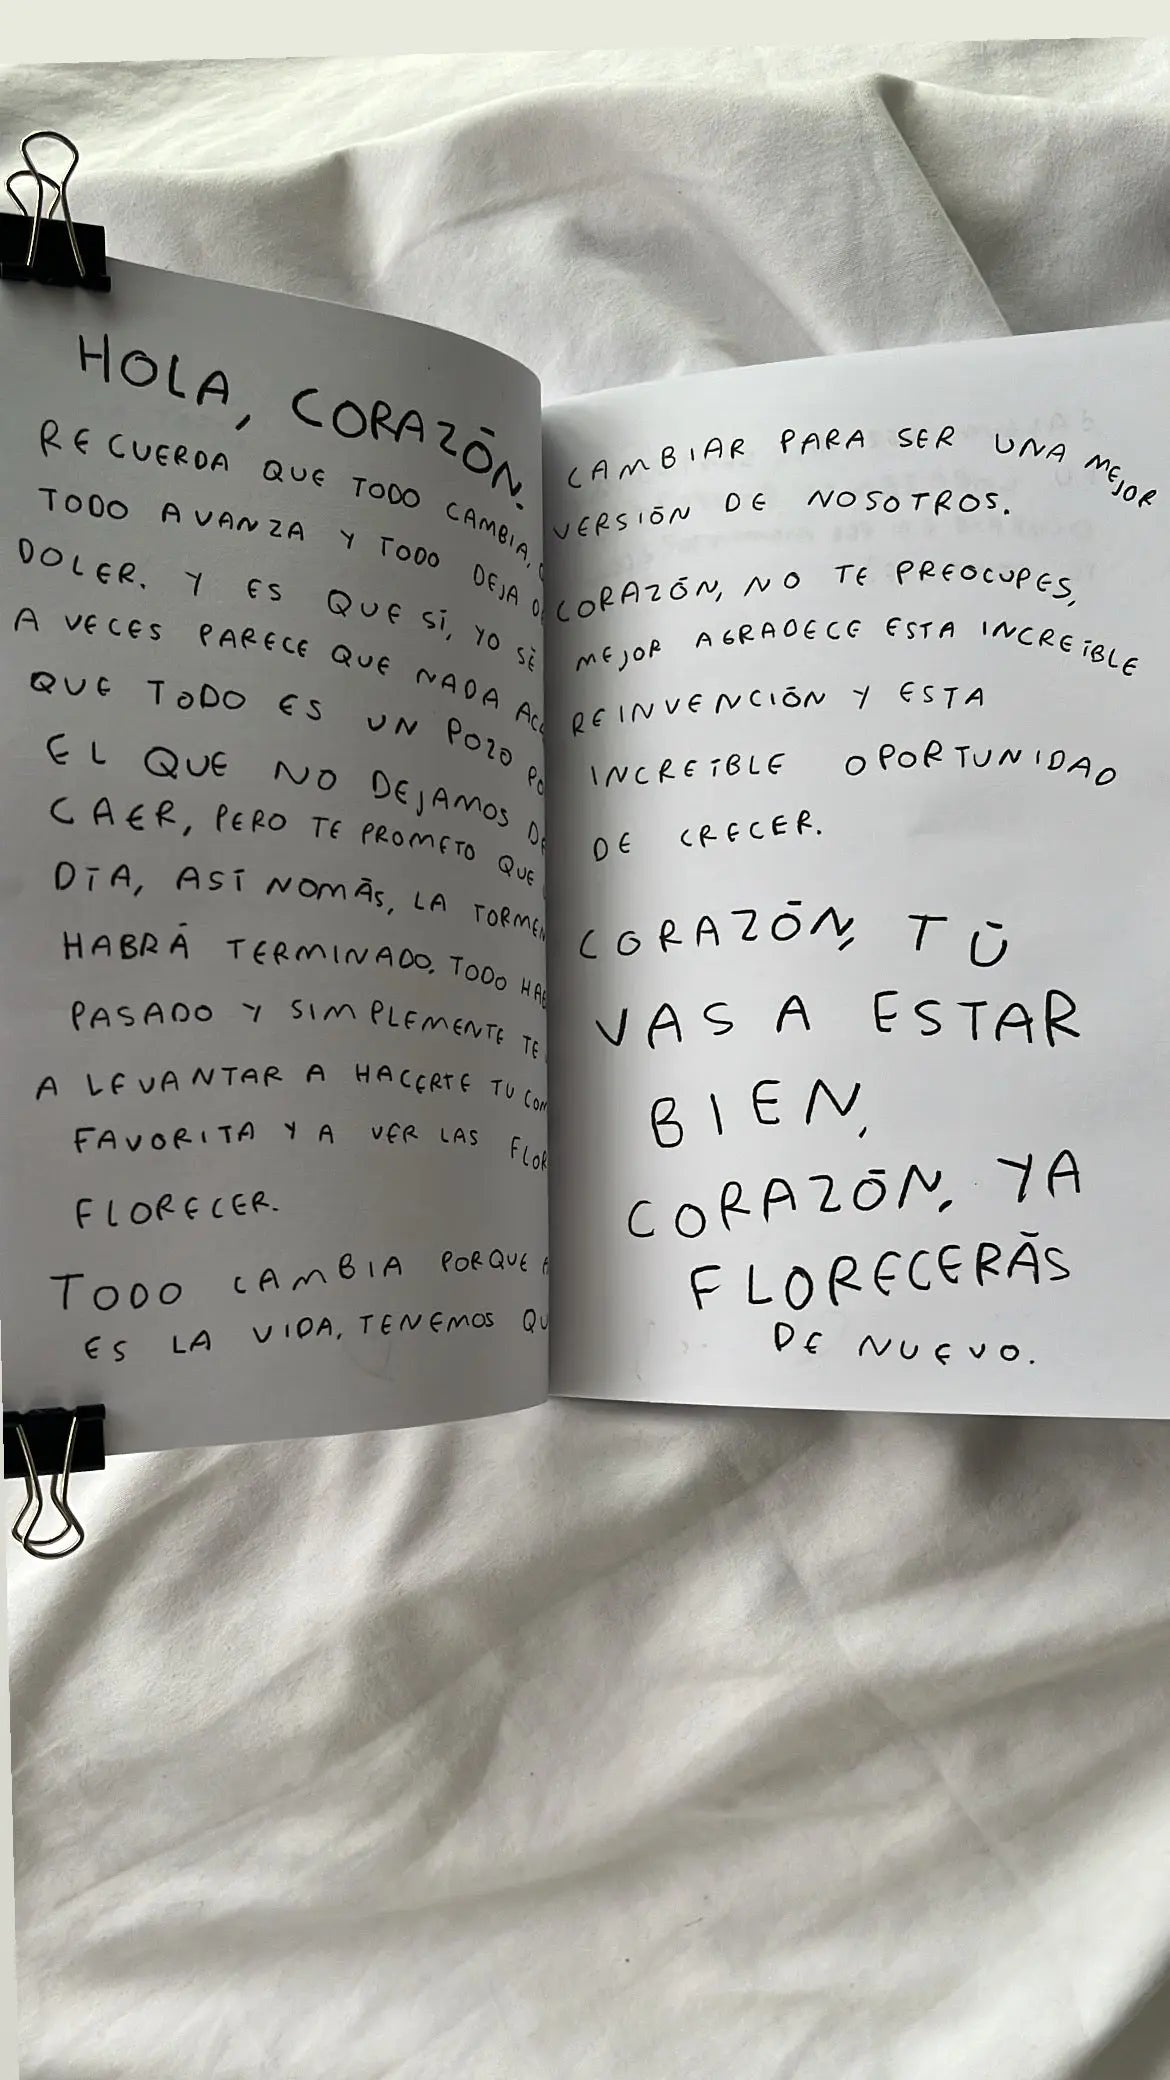 HOLA, CORAZÓN.
RECUERDA QUE TODO CAMBIA,
TODO AVANZA Y TODO DEJA
DOLER. Y ES QUE SÍ, YO SÉ
A VECES PARECE QUE NADA
QUE TODO ES UN POZO
EL QUE NO DEJAMOS
CAER, PERO TE PROMETO QUE
DÍA, ASÍ NOMÁS, LA
HABRÁ TERMINADO. TODO
PASADO Y SIMPLEMENTE TE
A LEVANTAR A HACERTE TU
FAVORITA Y A VER LAS
FLORECER.
TODO CAMBIA PORQUE
ES LA VIDA, TENEMOS
CAMBIAR PARA SER UNA MEJOR
VERSIÓN DE NOSOTROS.
CORAZÓN, NO TE PREOCUPES,
MEJOR AGRADECE ESTA INCREÍBLE
REINVENCIÓN Y ESTA
INCREÍBLE OPORTUNIDAD
DE CRECER.
CORAZÓN, TÚ
VAS A ESTAR
BIEN,
CORAZÓN, YA
FLORECERÁS
DE NUEVO.